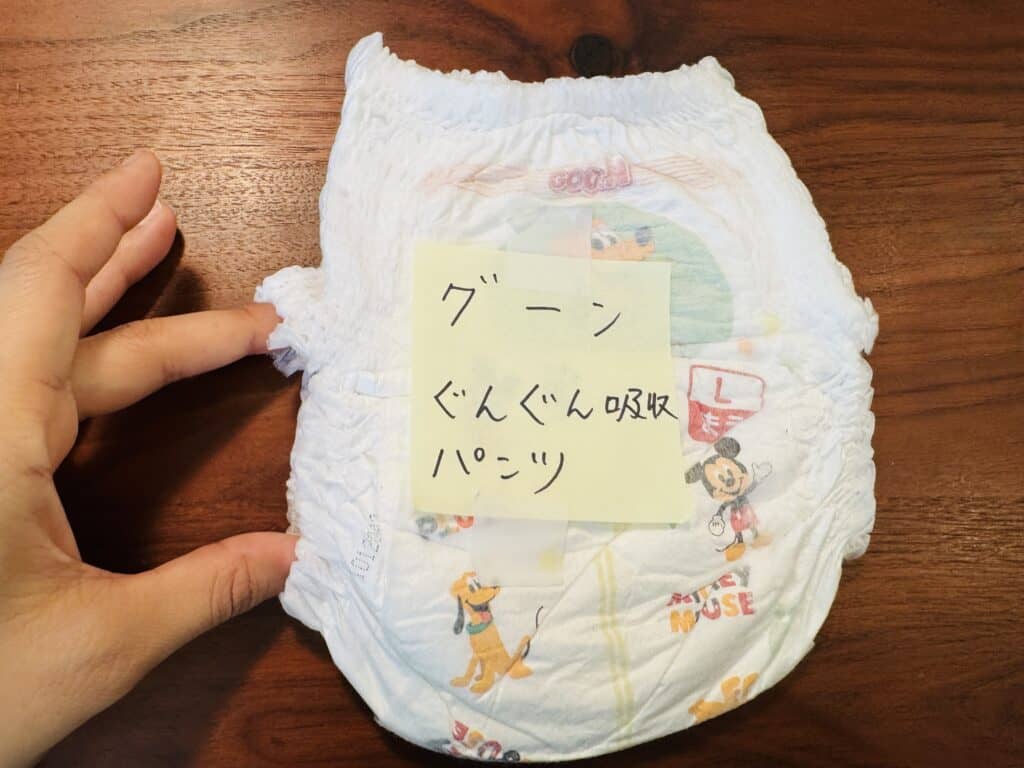 GOO.N
グーン
L
ぐんぐん吸収
パンツ
MICKEY
MOUSE